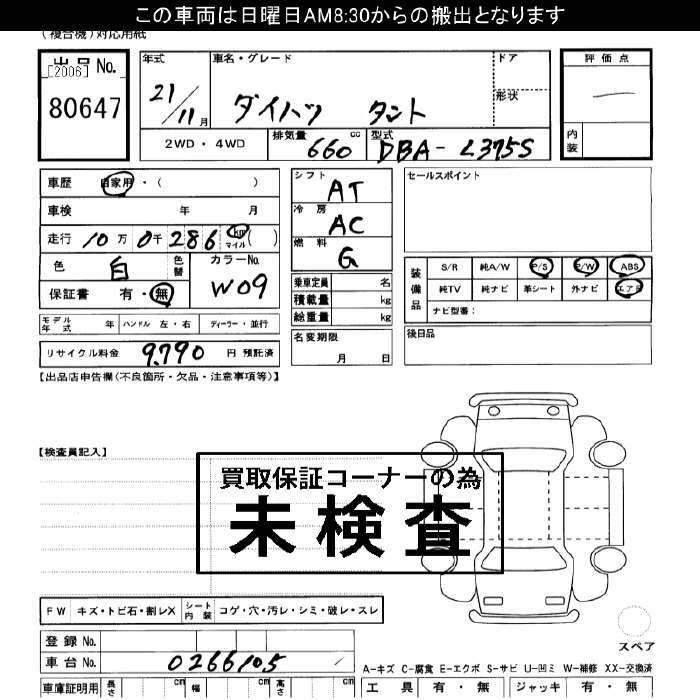 この車両は日曜日AM8:30からの搬出となります
(複合機)対応用紙
出品No. [2006] 80647
年式 21/11月
車名・グレード ダイハツ タント
ドア
形状
評価点
内装
2WD・4WD
排気量 660 cc
型式 DBA-L375S
車歴 自家用・( )
車検 年 月
走行 10万0千286 km マイル ( )
色 白
色替
カラーNo. W09
保証書 有・無
シフト AT
冷房 AC
燃料 G
乗車定員 名
積載量 kg
総重量 kg
セールスポイント
装備品
S/R 純A/W P/S P/W ABS
純TV 純ナビ 革シート 外ナビ エアB
ナビ型番:
モデル年式 年 ハンドル 左・右 ディーラー・並行
名変期限 月 日
後日品
リサイクル料金 9,790 円 預託済
【出品店申告欄(不良箇所・欠品・注意事項等)】
【検査員記入】
買取保証コーナーの為
未検査
FW キズ・トビ石・割レX シート内装 コゲ・穴・汚レ・シミ・破レ・スレ
登録No.
車台No. 0266105
スペア
A-キズ C-腐食 E-エクボ S-サビ U-凹ミ W-補修 XX-交換済
車庫証明用 長さ cm 幅 cm 高さ cm
工具 有・無 ジャッキ 有・無